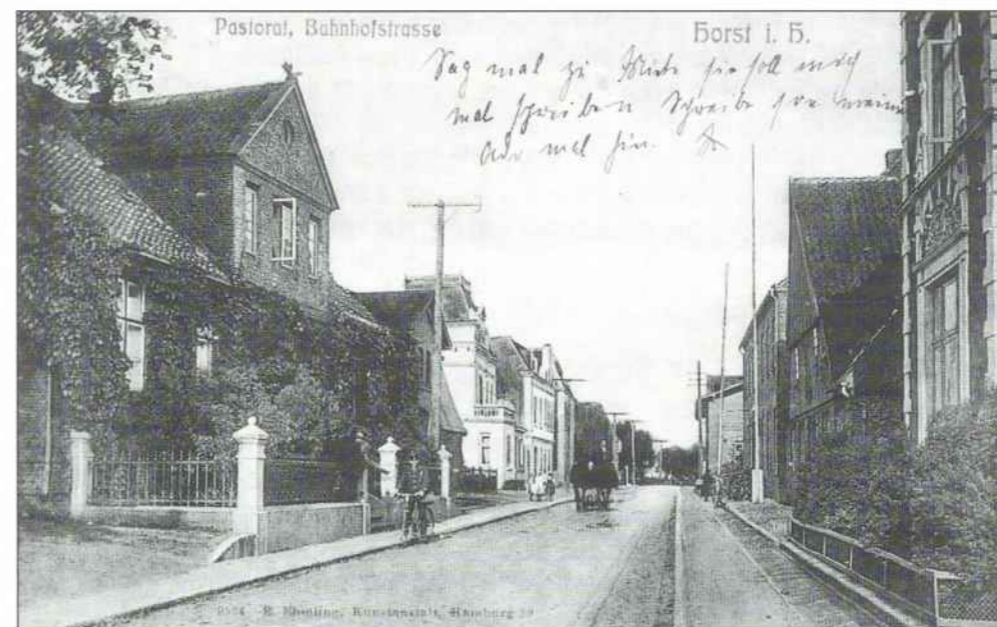 Pastorat, Bahnhofstrasse
Horst i. H.
Sag mal zu sie soll mich
mal schreiben Schreibe
mal hin.
Kunstanstalt, Hamburg